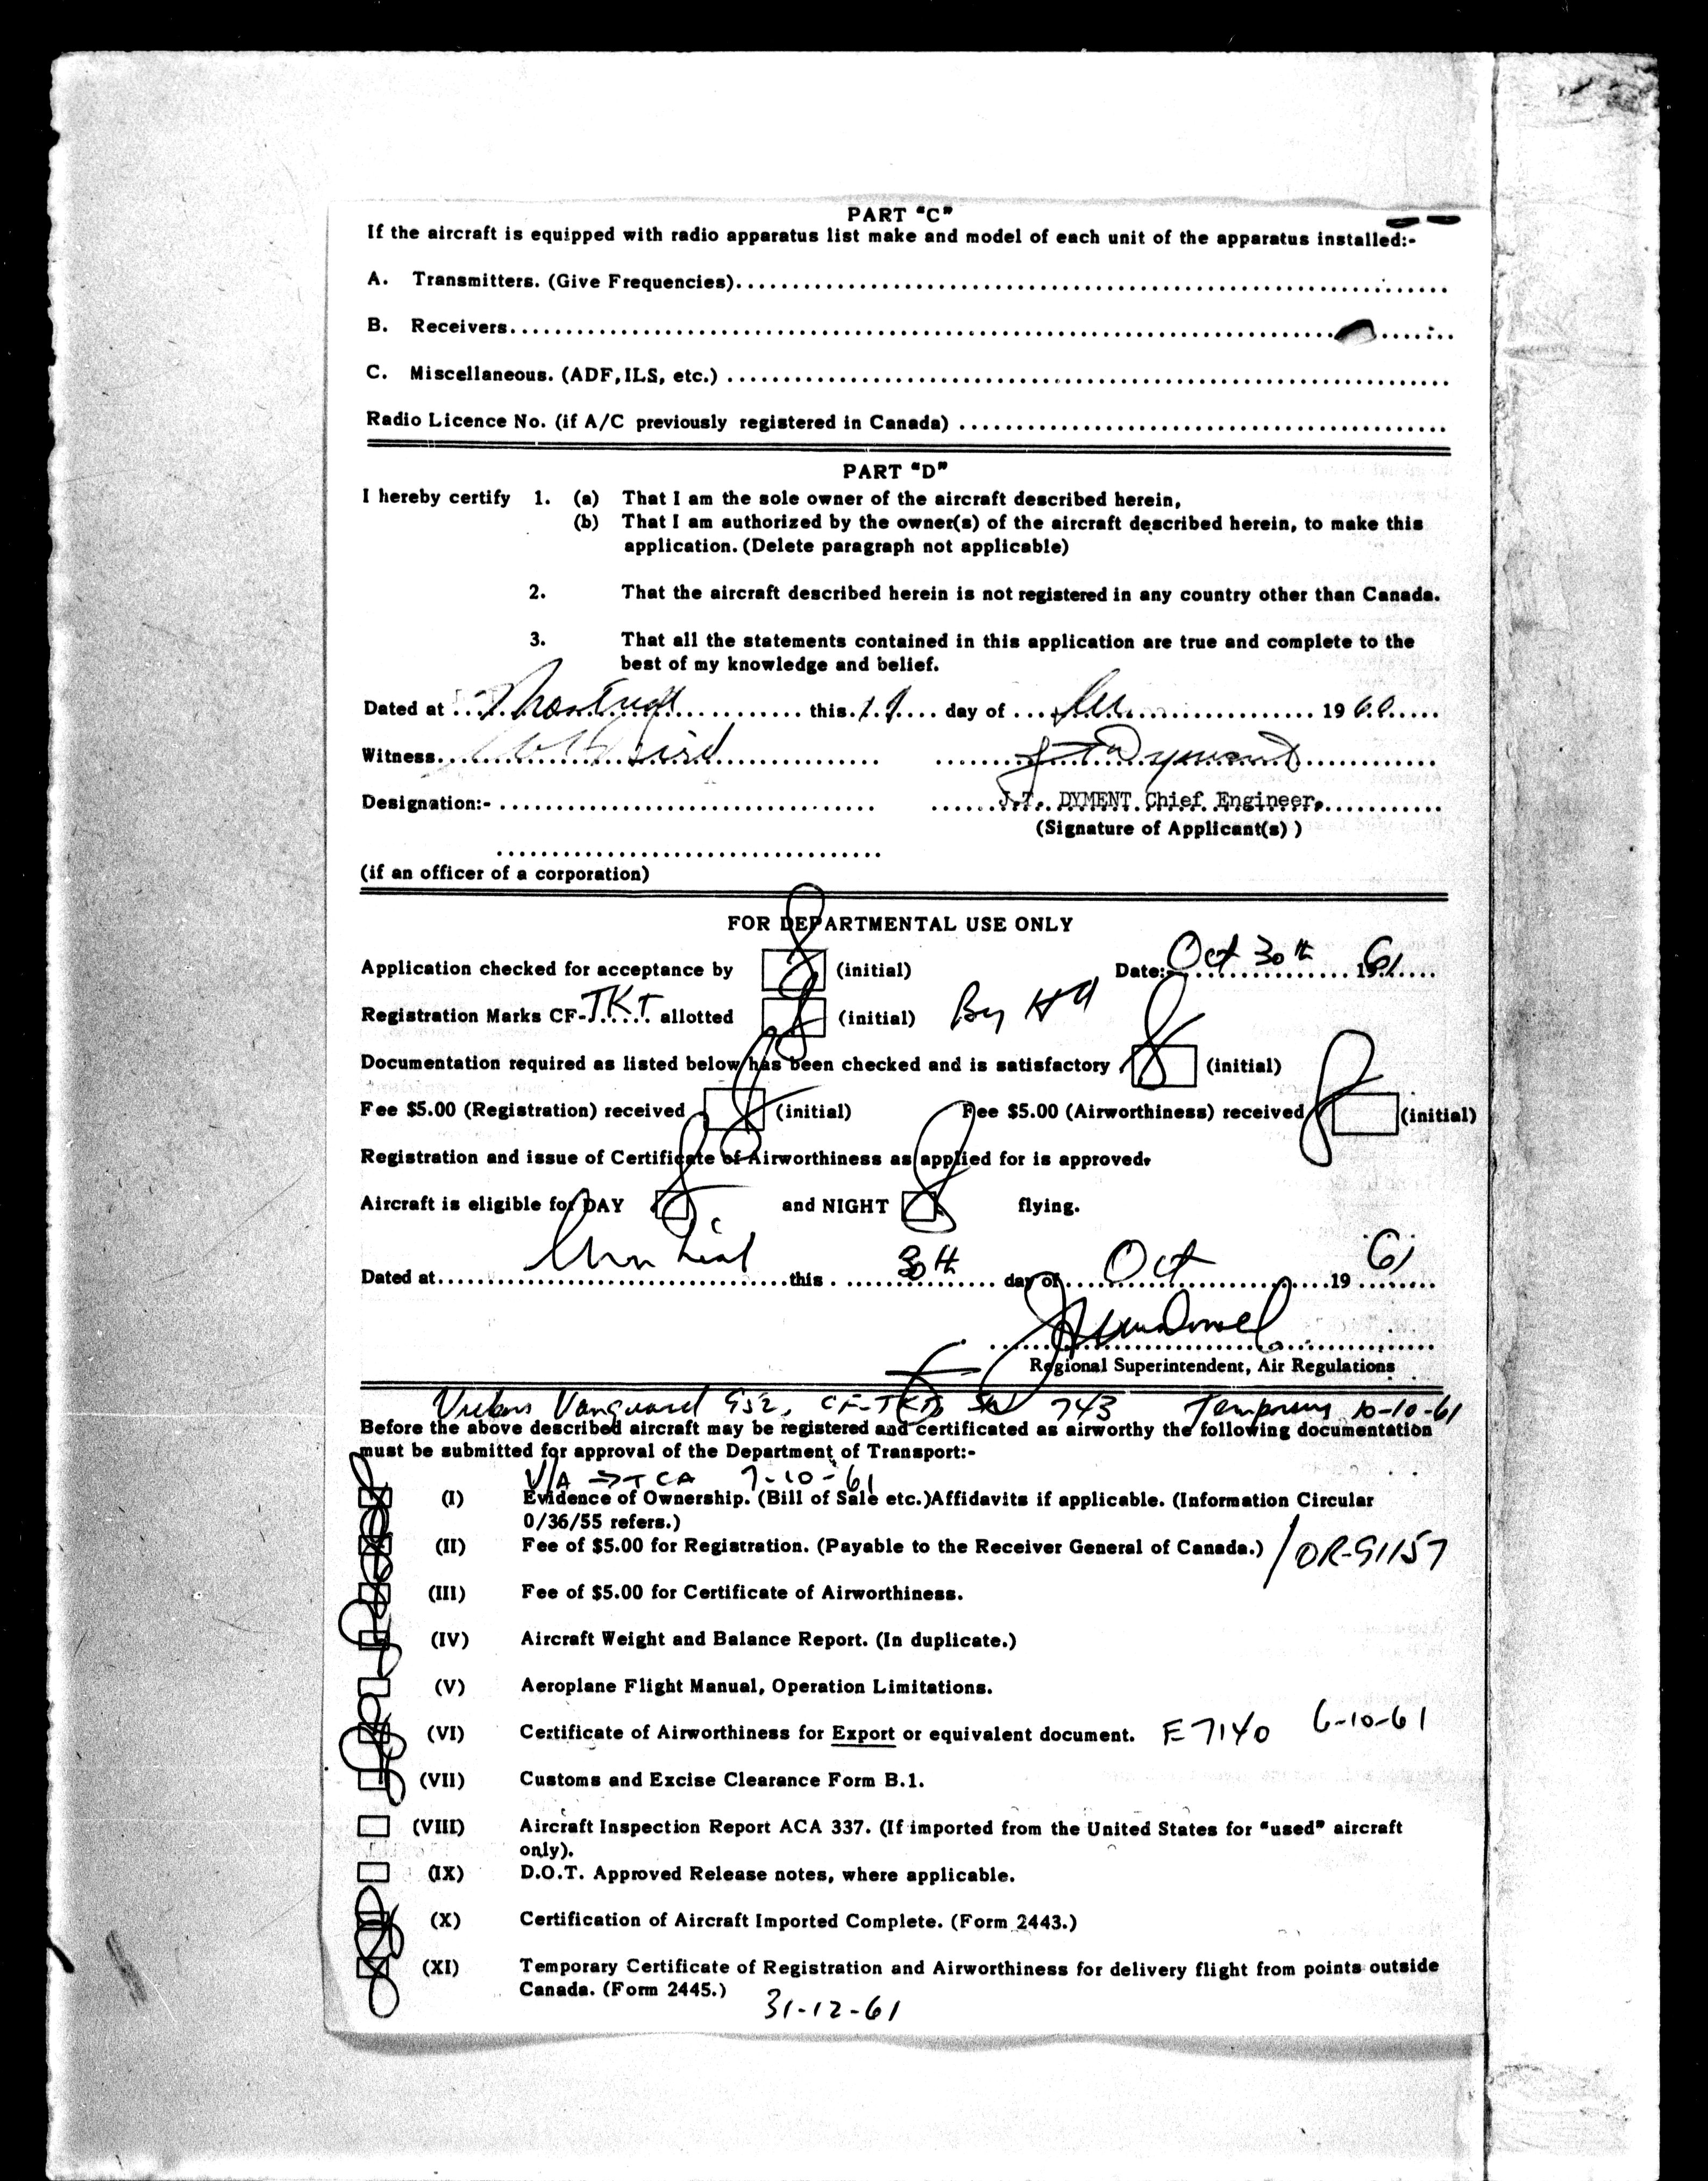 PART "C"
If the aircraft is equipped with radio apparatus list make and model of each unit of the apparatus installed:-
A. Transmitters. (Give Frequencies)
B. Receivers
C. Miscellaneous. (ADF, ILS, etc.)
Radio Licence No. (if A/C previously registered in Canada)
PART "D"
I hereby certify 1. (a) That I am the sole owner of the aircraft described herein,
(b) That I am authorized by the owner(s) of the aircraft described herein, to make this
application. (Delete paragraph not applicable)
2. That the aircraft described herein is not registered in any country other than Canada.
3. That all the statements contained in this application are true and complete to the
best of my knowledge and belief.
Dated at this 19 day of 1960
Witness
Designation:- J.T. DYMENT Chief Engineer.
(Signature of Applicant(s) )
(if an officer of a corporation)
FOR DEPARTMENTAL USE ONLY
Application checked for acceptance by (initial) Date: Oct 30th 1961
Registration Marks CF-TKT allotted (initial) By
Documentation required as listed below has been checked and is satisfactory (initial)
Fee $5.00 (Registration) received (initial) Fee $5.00 (Airworthiness) received (initial)
Registration and issue of Certificate of Airworthiness as applied for is approved.
Aircraft is eligible for DAY and NIGHT flying.
Dated at this 30th day of Oct 19 61
Regional Superintendent, Air Regulations
Vanguard 952, CF-TKT, SN 743 Temporary 10-10-61
Before the above described aircraft may be registered and certificated as airworthy the following documentation
must be submitted for approval of the Department of Transport:-
V/A → TCA 7-10-61
(I) Evidence of Ownership. (Bill of Sale etc.)Affidavits if applicable. (Information Circular
0/36/55 refers.)
(II) Fee of $5.00 for Registration. (Payable to the Receiver General of Canada.) / OR-91157
(III) Fee of $5.00 for Certificate of Airworthiness.
(IV) Aircraft Weight and Balance Report. (In duplicate.)
(V) Aeroplane Flight Manual, Operation Limitations.
(VI) Certificate of Airworthiness for Export or equivalent document. E7140 6-10-61
(VII) Customs and Excise Clearance Form B.1.
(VIII) Aircraft Inspection Report ACA 337. (If imported from the United States for "used" aircraft
only).
(IX) D.O.T. Approved Release notes, where applicable.
(X) Certification of Aircraft Imported Complete. (Form 2443.)
(XI) Temporary Certificate of Registration and Airworthiness for delivery flight from points outside
Canada. (Form 2445.)
31-12-61